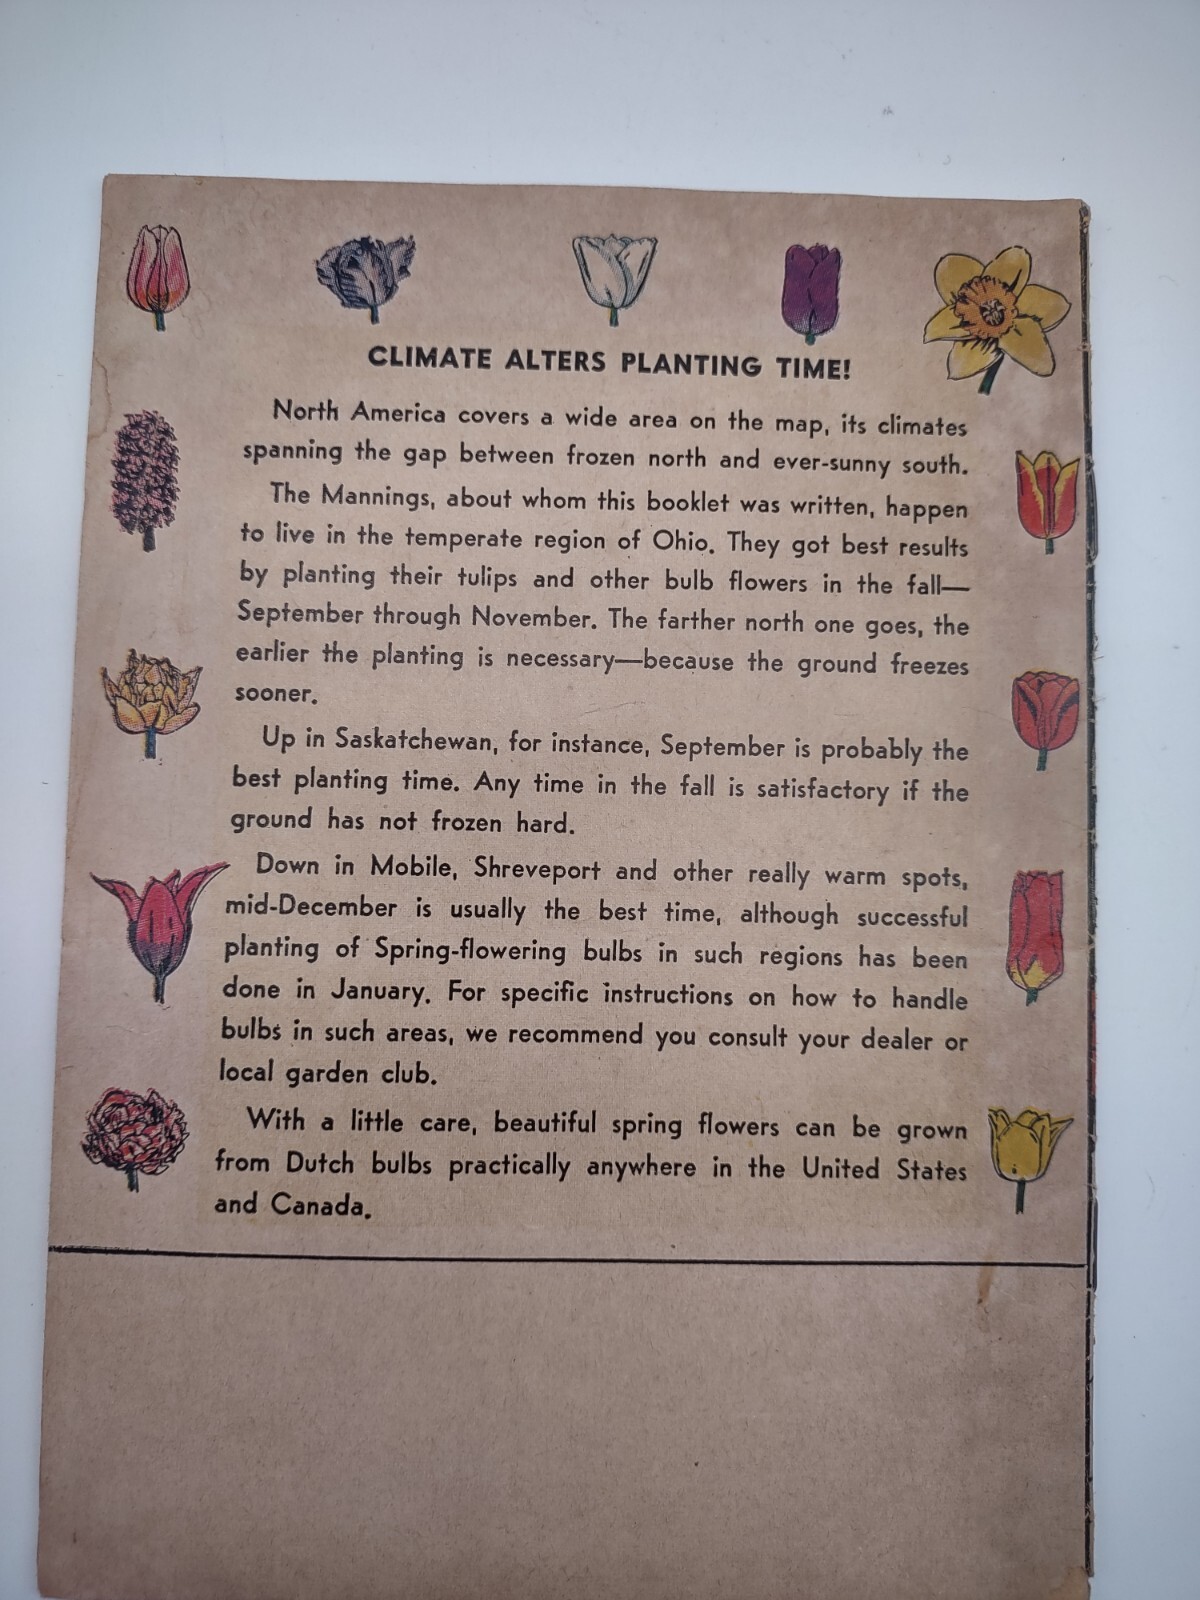 CLIMATE ALTERS PLANTING TIME!
North America covers a wide area on the map, its climates
spanning the gap between frozen north and ever-sunny south.
The Mannings, about whom this booklet was written, happen
to live in the temperate region of Ohio. They got best results
by planting their tulips and other bulb flowers in the fall—
September through November. The farther north one goes, the
earlier the planting is necessary—because the ground freezes
sooner.
Up in Saskatchewan, for instance, September is probably the
best planting time. Any time in the fall is satisfactory if the
ground has not frozen hard.
Down in Mobile, Shreveport and other really warm spots,
mid-December is usually the best time, although successful
planting of Spring-flowering bulbs in such regions has been
done in January. For specific instructions on how to handle
bulbs in such areas, we recommend you consult your dealer or
local garden club.
With a little care, beautiful spring flowers can be grown
from Dutch bulbs practically anywhere in the United States
and Canada.